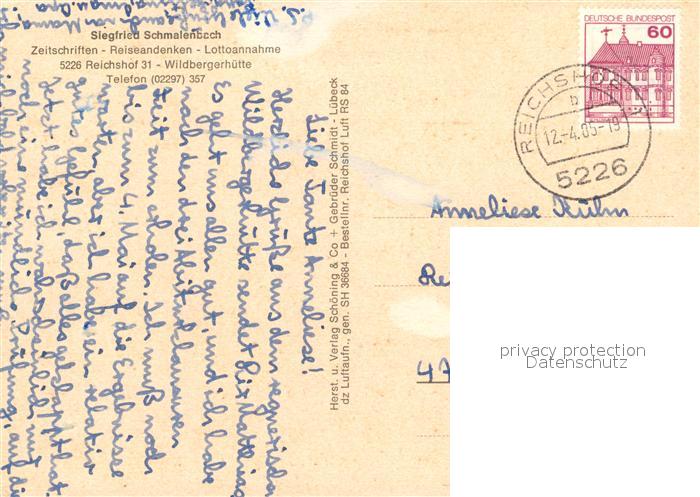 Siegfried Schmalenbach
Zeitschriften - Reiseandenken - Lottoannahme
5226 Reichshof 31 - Wildbergerhütte
Telefon (02297) 357
DEUTSCHE BUNDESPOST
60
REICHSHOF
b
12.-4.85-19
5226
Anneliese Kühn
Re
47
privacy protection
Datenschutz
Herst. u. Verlag Schöning & Co + Gebrüder Schmidt - Lübeck
dz Luftaufn., gen. SH 36684 - Bestellnr. Reichshof Luft RS 84
Liebe Tante Anneliese!
Herzliche Grüße aus dem regnerischen
Wildbergerhütte sendet Dir Matthias
Es geht uns allen gut, und ich habe
nach den drei Abiturklausuren
Zeit zum Ich muß noch
bis zum 4. Mai auf die Ergebnisse
warten, aber ich habe ein relativ
gutes Gefühl, daß alles geklappt hat.
Jetzt habe ich wahrscheinlich nur
noch eine mündliche Prüfung, auf die
P.S. Viele Grüße